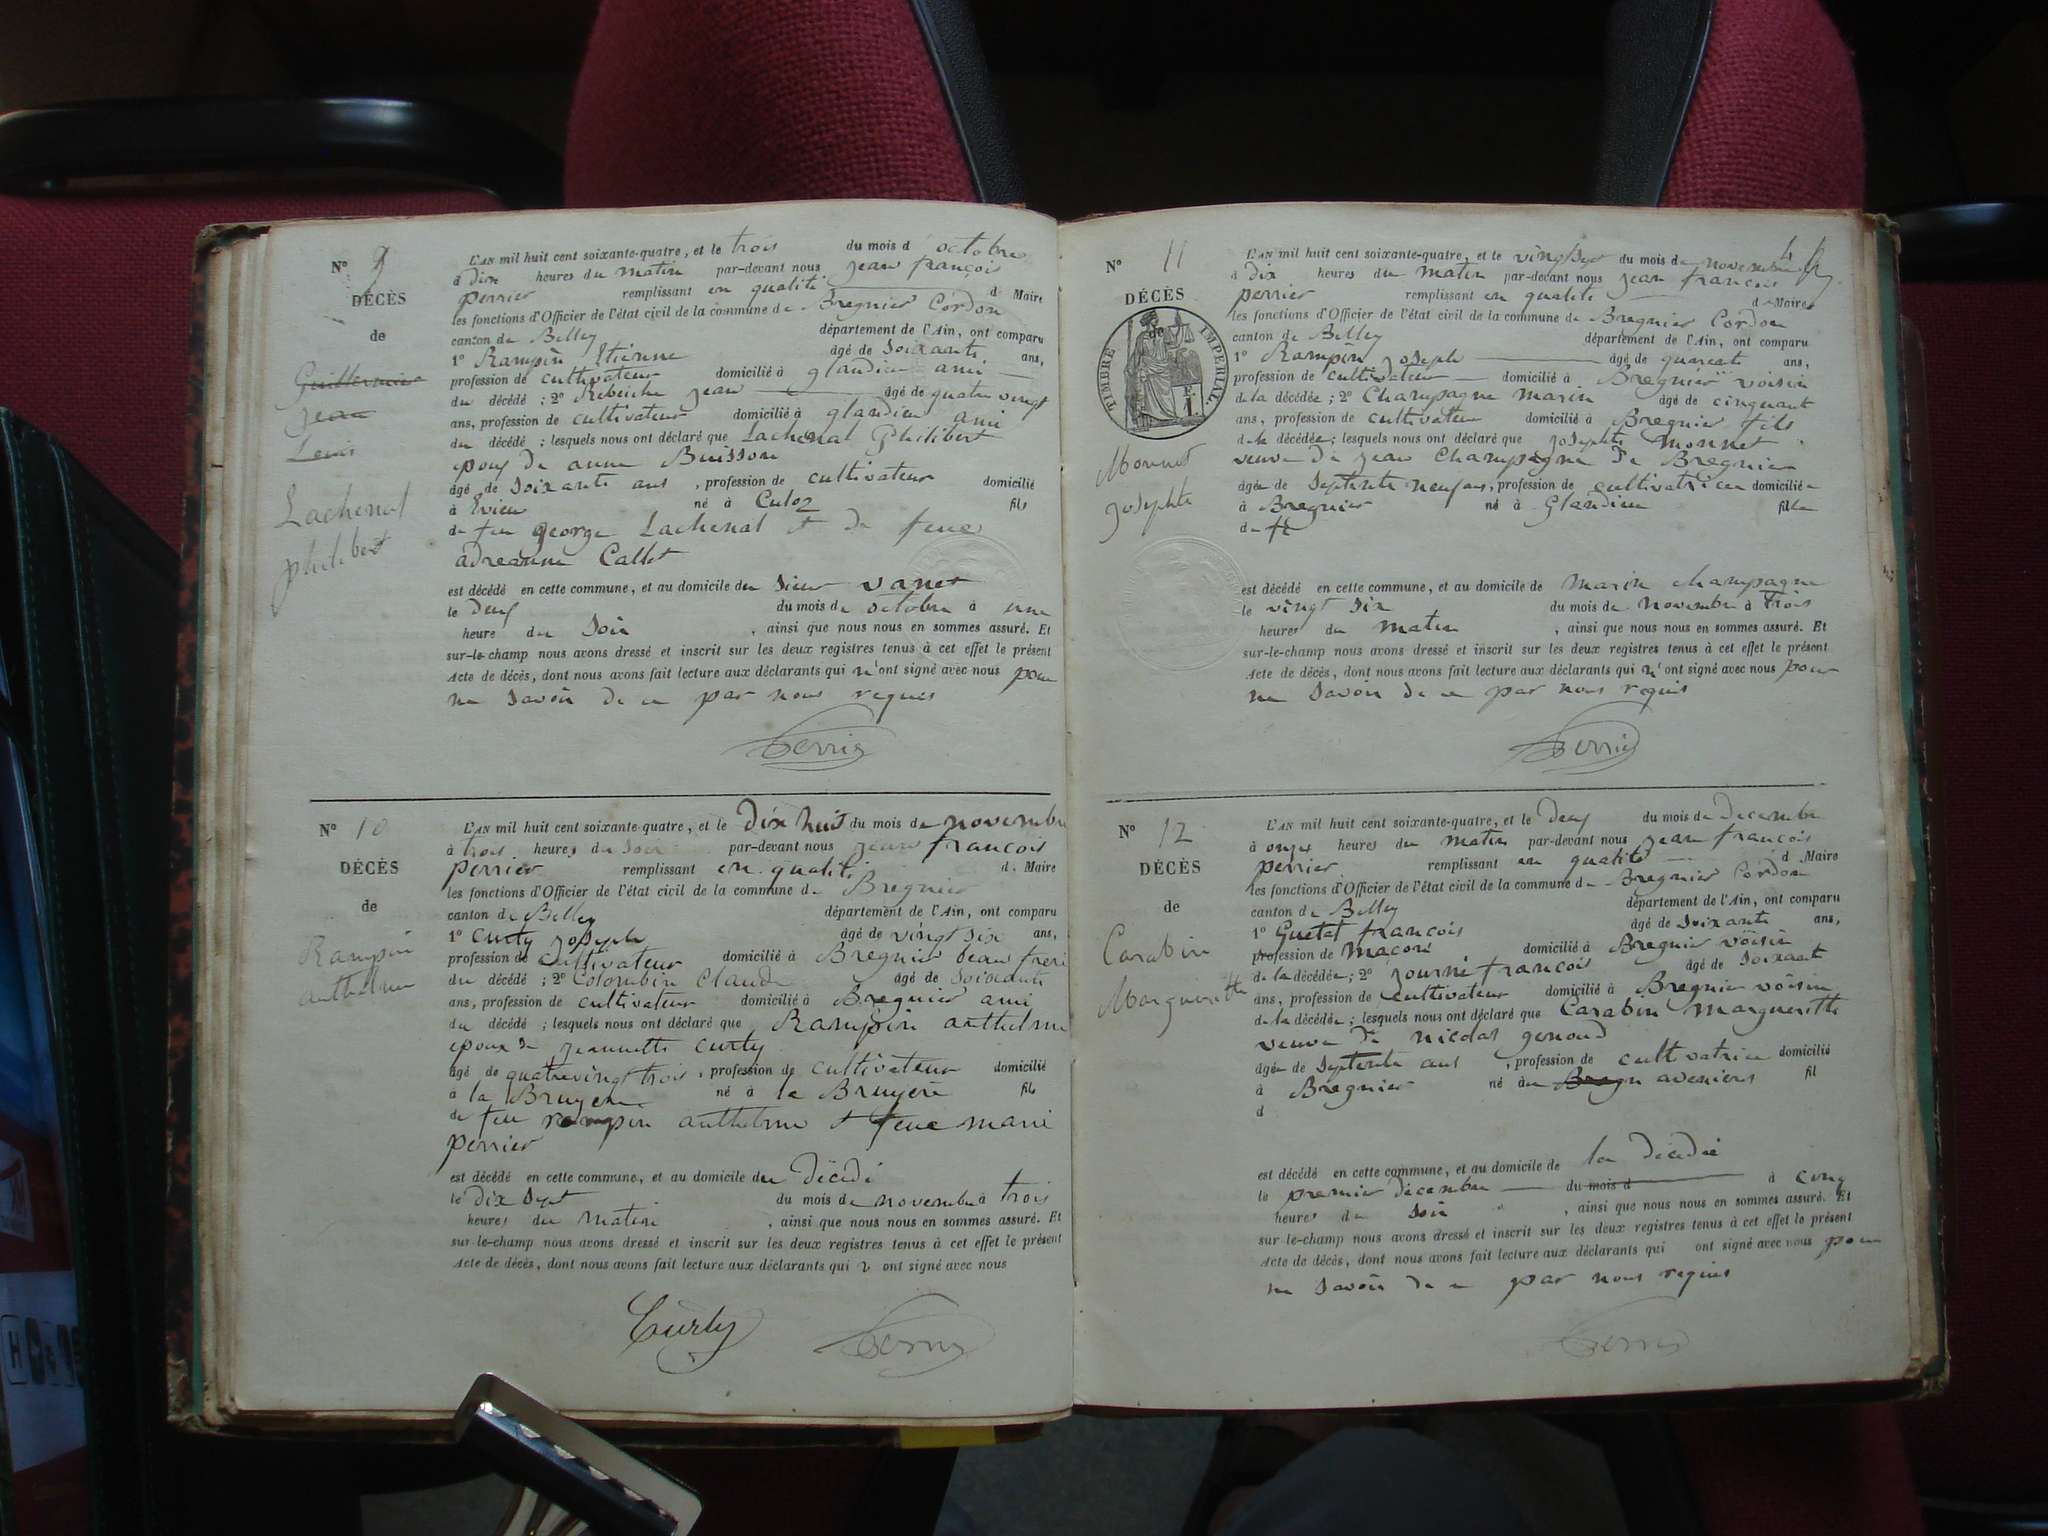 N° 9
DÉCÈS
de
Guillermier
Jean
Louis
Lachenal
philibert
L'AN mil huit cent soixante-quatre, et le trois du mois d octobre
à dix heures du matin par-devant nous jean françois
perrier remplissant en qualité d Maire
les fonctions d'Officier de l'état civil de la commune de Bregnier Cordon
canton de Belley département de l'Ain, ont comparu
1° Rampin Etienne âgé de soixante ans,
profession de cultivateur domicilié à glandieu ami
du décédé ; 2° Rebeiche jean âgé de quatre vingt
ans, profession de cultivateur domicilié à glandieu ami
du décédé ; lesquels nous ont déclaré que Lachenal Philibert
epoux de anne Buisson
âgé de soixante ans , profession de cultivateur domicilié
à Evieu né à Culoz fils
de feu george Lachenal et de feue
adreanne Callet
est décédé en cette commune, et au domicile du sieur vanet
le deux du mois de octobre à une
heure du soir , ainsi que nous nous en sommes assuré. Et
sur-le-champ nous avons dressé et inscrit sur les deux registres tenus à cet effet le présent
Acte de décès, dont nous avons fait lecture aux déclarants qui n'ont signé avec nous pour
ne savoir de ce par nous reques
Perrier
N° 10
DÉCÈS
de
Rampin
anthelme
L'AN mil huit cent soixante-quatre, et le Dix huit du mois de novembre
à trois heures du soir par-devant nous jean françois
perrier remplissant en qualité d. Maire
les fonctions d'Officier de l'état civil de la commune de Bregnier
canton de Belley département de l'Ain, ont comparu
1° Curty joseph âgé de vingt six ans,
profession de cultivateur domicilié à Bregnier beau frere
du décédé ; 2° Colombin Claude âgé de soixante
ans, profession de cultivateur domicilié à Bregnier ami
du décédé ; lesquels nous ont déclaré que Rampin anthelme
epoux de jeannette curty
âgé de quatrevingt trois , profession de cultivateur domicilié
à la Bruyere né à la Bruyere fils
de feu rampin anthelme et feue marie
perrier
est décédé en cette commune, et au domicile du décédé
le dix sept du mois de novembre à trois
heures du matin , ainsi que nous nous en sommes assuré. Et
sur-le-champ nous avons dressé et inscrit sur les deux registres tenus à cet effet le présent
Acte de décès, dont nous avons fait lecture aux déclarants qui ont signé avec nous
Curty Perrier
N° 11
DÉCÈS
de
TIMBRE IMPERIAL
F. 1.
Monnet
josephte
L'AN mil huit cent soixante-quatre, et le vingt sept du mois de novembre
à dix heures du matin par-devant nous jean francois
perrier remplissant en qualité d Maire
les fonctions d'Officier de l'état civil de la commune de Bregnier Cordon
canton de Belley département de l'Ain, ont comparu
1° Rampin joseph âgé de quarente ans,
profession de cultivateur domicilié à Bregnier voisin
de la décédée ; 2° Champagne marin âgé de cinquant
ans, profession de cultivateur domicilié à Bregnier fils
de la décédée ; lesquels nous ont déclaré que josephte monnet
veuve de jean Champagne de Bregnier
âgée de septente neuf ans, profession de cultivatrice domiciliée
à Bregnier né à Glandieu fille
de
est décédé en cette commune, et au domicile de marin champagne
le vingt six du mois de novembre à trois
heures du matin , ainsi que nous nous en sommes assuré. Et
sur-le-champ nous avons dressé et inscrit sur les deux registres tenus à cet effet le présent
Acte de décès, dont nous avons fait lecture aux déclarants qui n'ont signé avec nous pour
ne savoir de ce par nous requis
Perrier
N° 12
DÉCÈS
de
Carabin
Marguerite
L'AN mil huit cent soixante-quatre, et le deux du mois de decembre
à onze heures du matin par-devant nous jean françois
perrier remplissant en qualité d Maire
les fonctions d'Officier de l'état civil de la commune de Bregnier Cordon
canton de Belley département de l'Ain, ont comparu
1° Guetat francois âgé de soixante ans,
profession de macon domicilié à Bregnier voisin
de la décédée ; 2° journé francois âgé de soixant
ans, profession de cultivateur domicilié à Bregnier voisin
de la décédée ; lesquels nous ont déclaré que Carabin margueritte
veuve de nicolas genoud
âgée de septente ans , profession de cultivatrice domicilié
à Bregnier né à Bregn avenieres fil
d
est décédé en cette commune, et au domicile de la décédée
le premier décembre du mois d à cinq
heures du soir , ainsi que nous nous en sommes assuré. Et
sur-le-champ nous avons dressé et inscrit sur les deux registres tenus à cet effet le présent
Acte de décès, dont nous avons fait lecture aux déclarants qui ont signé avec nous pour
ne savoir de ce par nous requis
Perrier